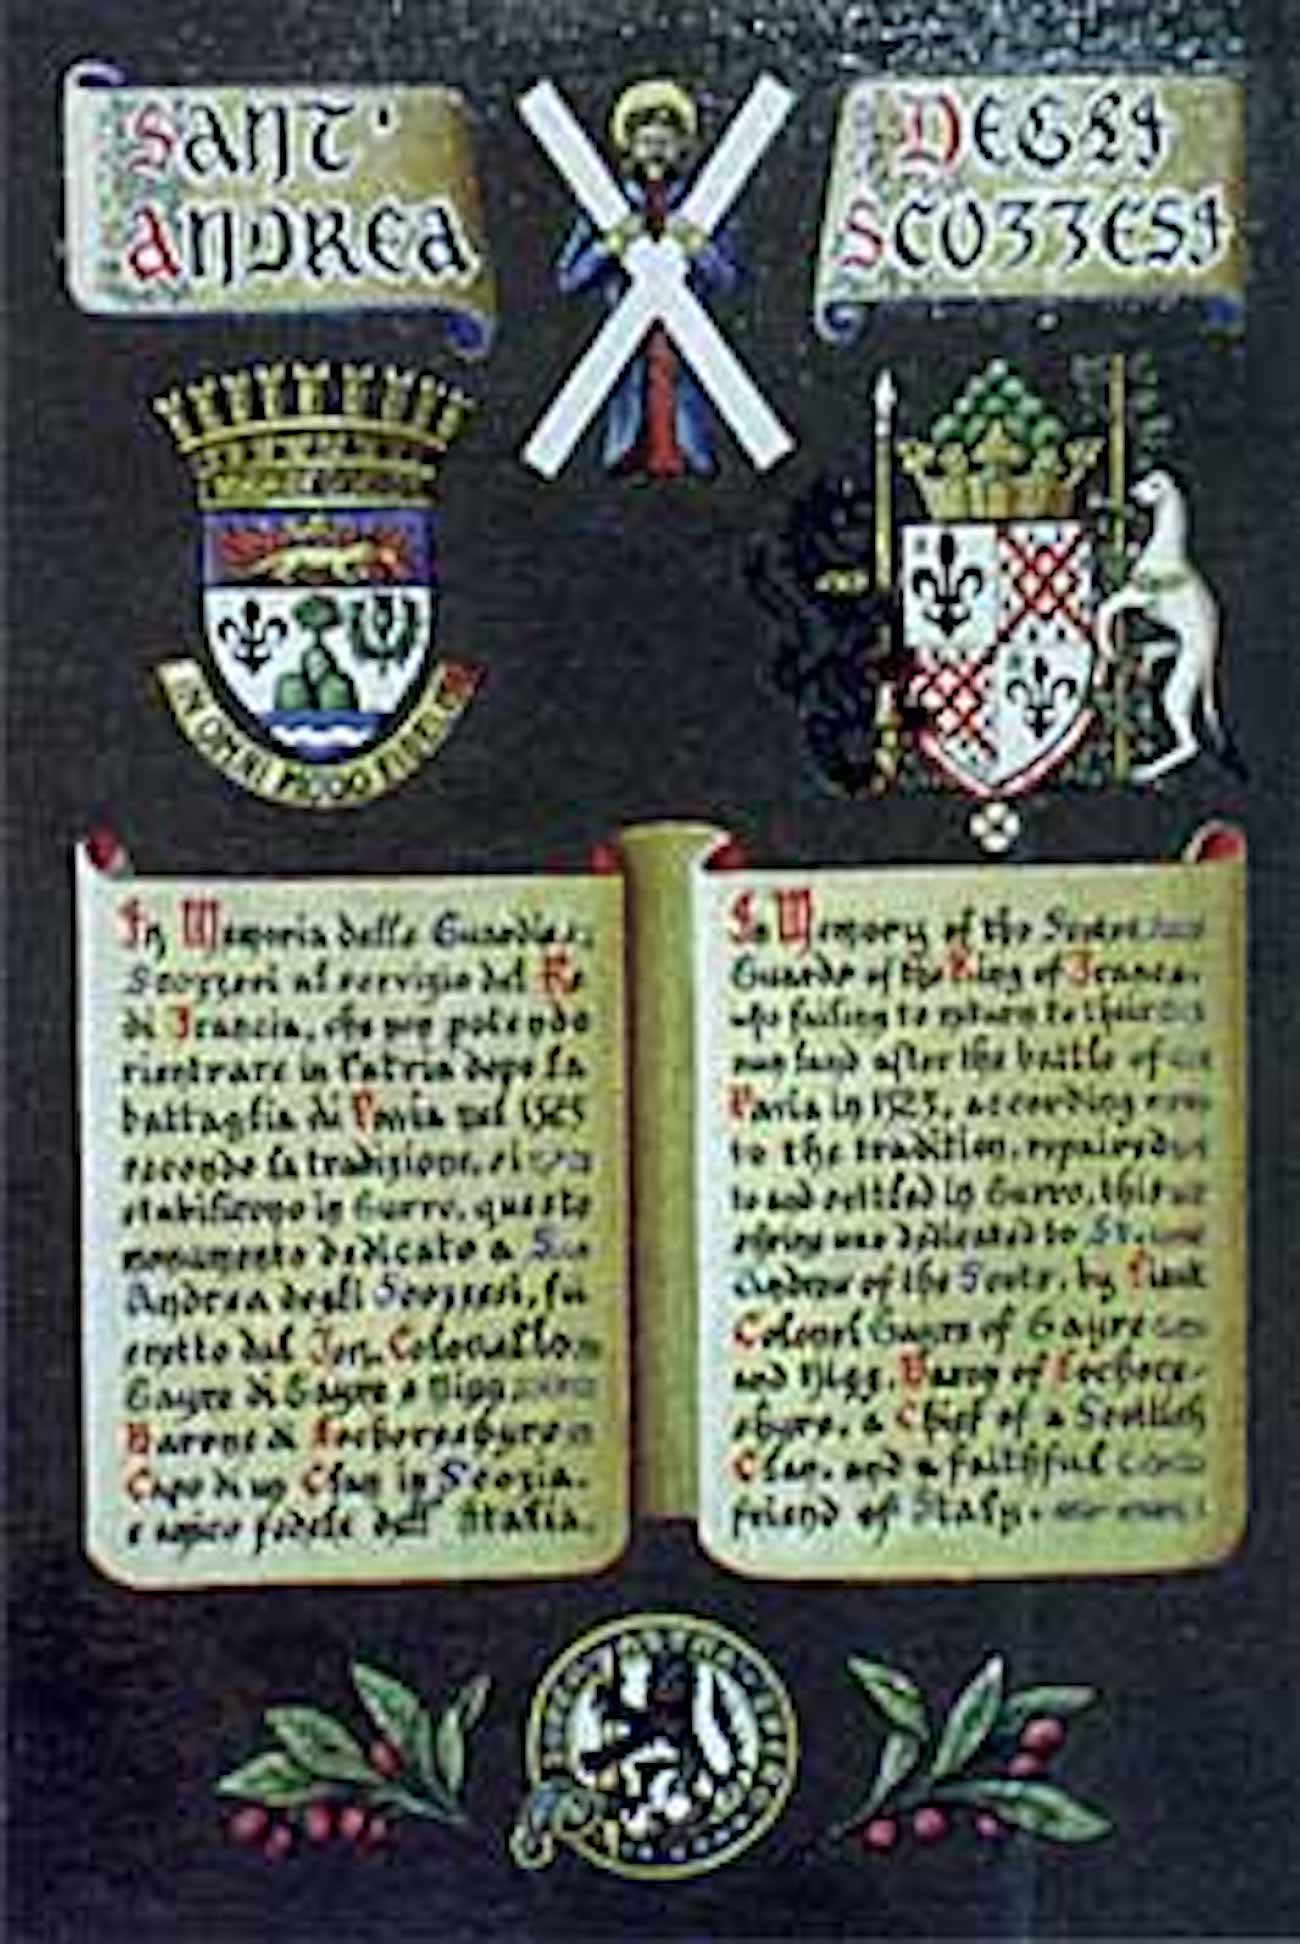 SANT'
ANDREA
DEGLI
SCOZZESI
IN OMNI MODO FIDELIS
In Memoria delle Guardie
Scozzesi al servizio del Re
di Francia, che non potendo
rientrare in Patria dopo la
battaglia di Pavia nel 1525
secondo la tradizione, si
stabilirono in Gurro, questo
monumento dedicato a S.
Andrea degli Scozzesi, fu
eretto dal Ten. Colonnello
Gayre di Gayre e Nigg,
Barone di Lochoreshyre
Capo di un Clan in Scozia,
e amico fedele dell' Italia.
In Memory of the Scots
Guards of the King of France,
who failing to return to their
own land after the battle of
Pavia in 1525, according
to the tradition, repaired
to and settled in Gurro, this
shrine was dedicated to St.
Andrew of the Scots, by Lieut
Colonel Gayre of Gayre
and Nigg, Baron of Lochore-
shyre, a Chief of a Scottish
Clan, and a faithful
friend of Italy.